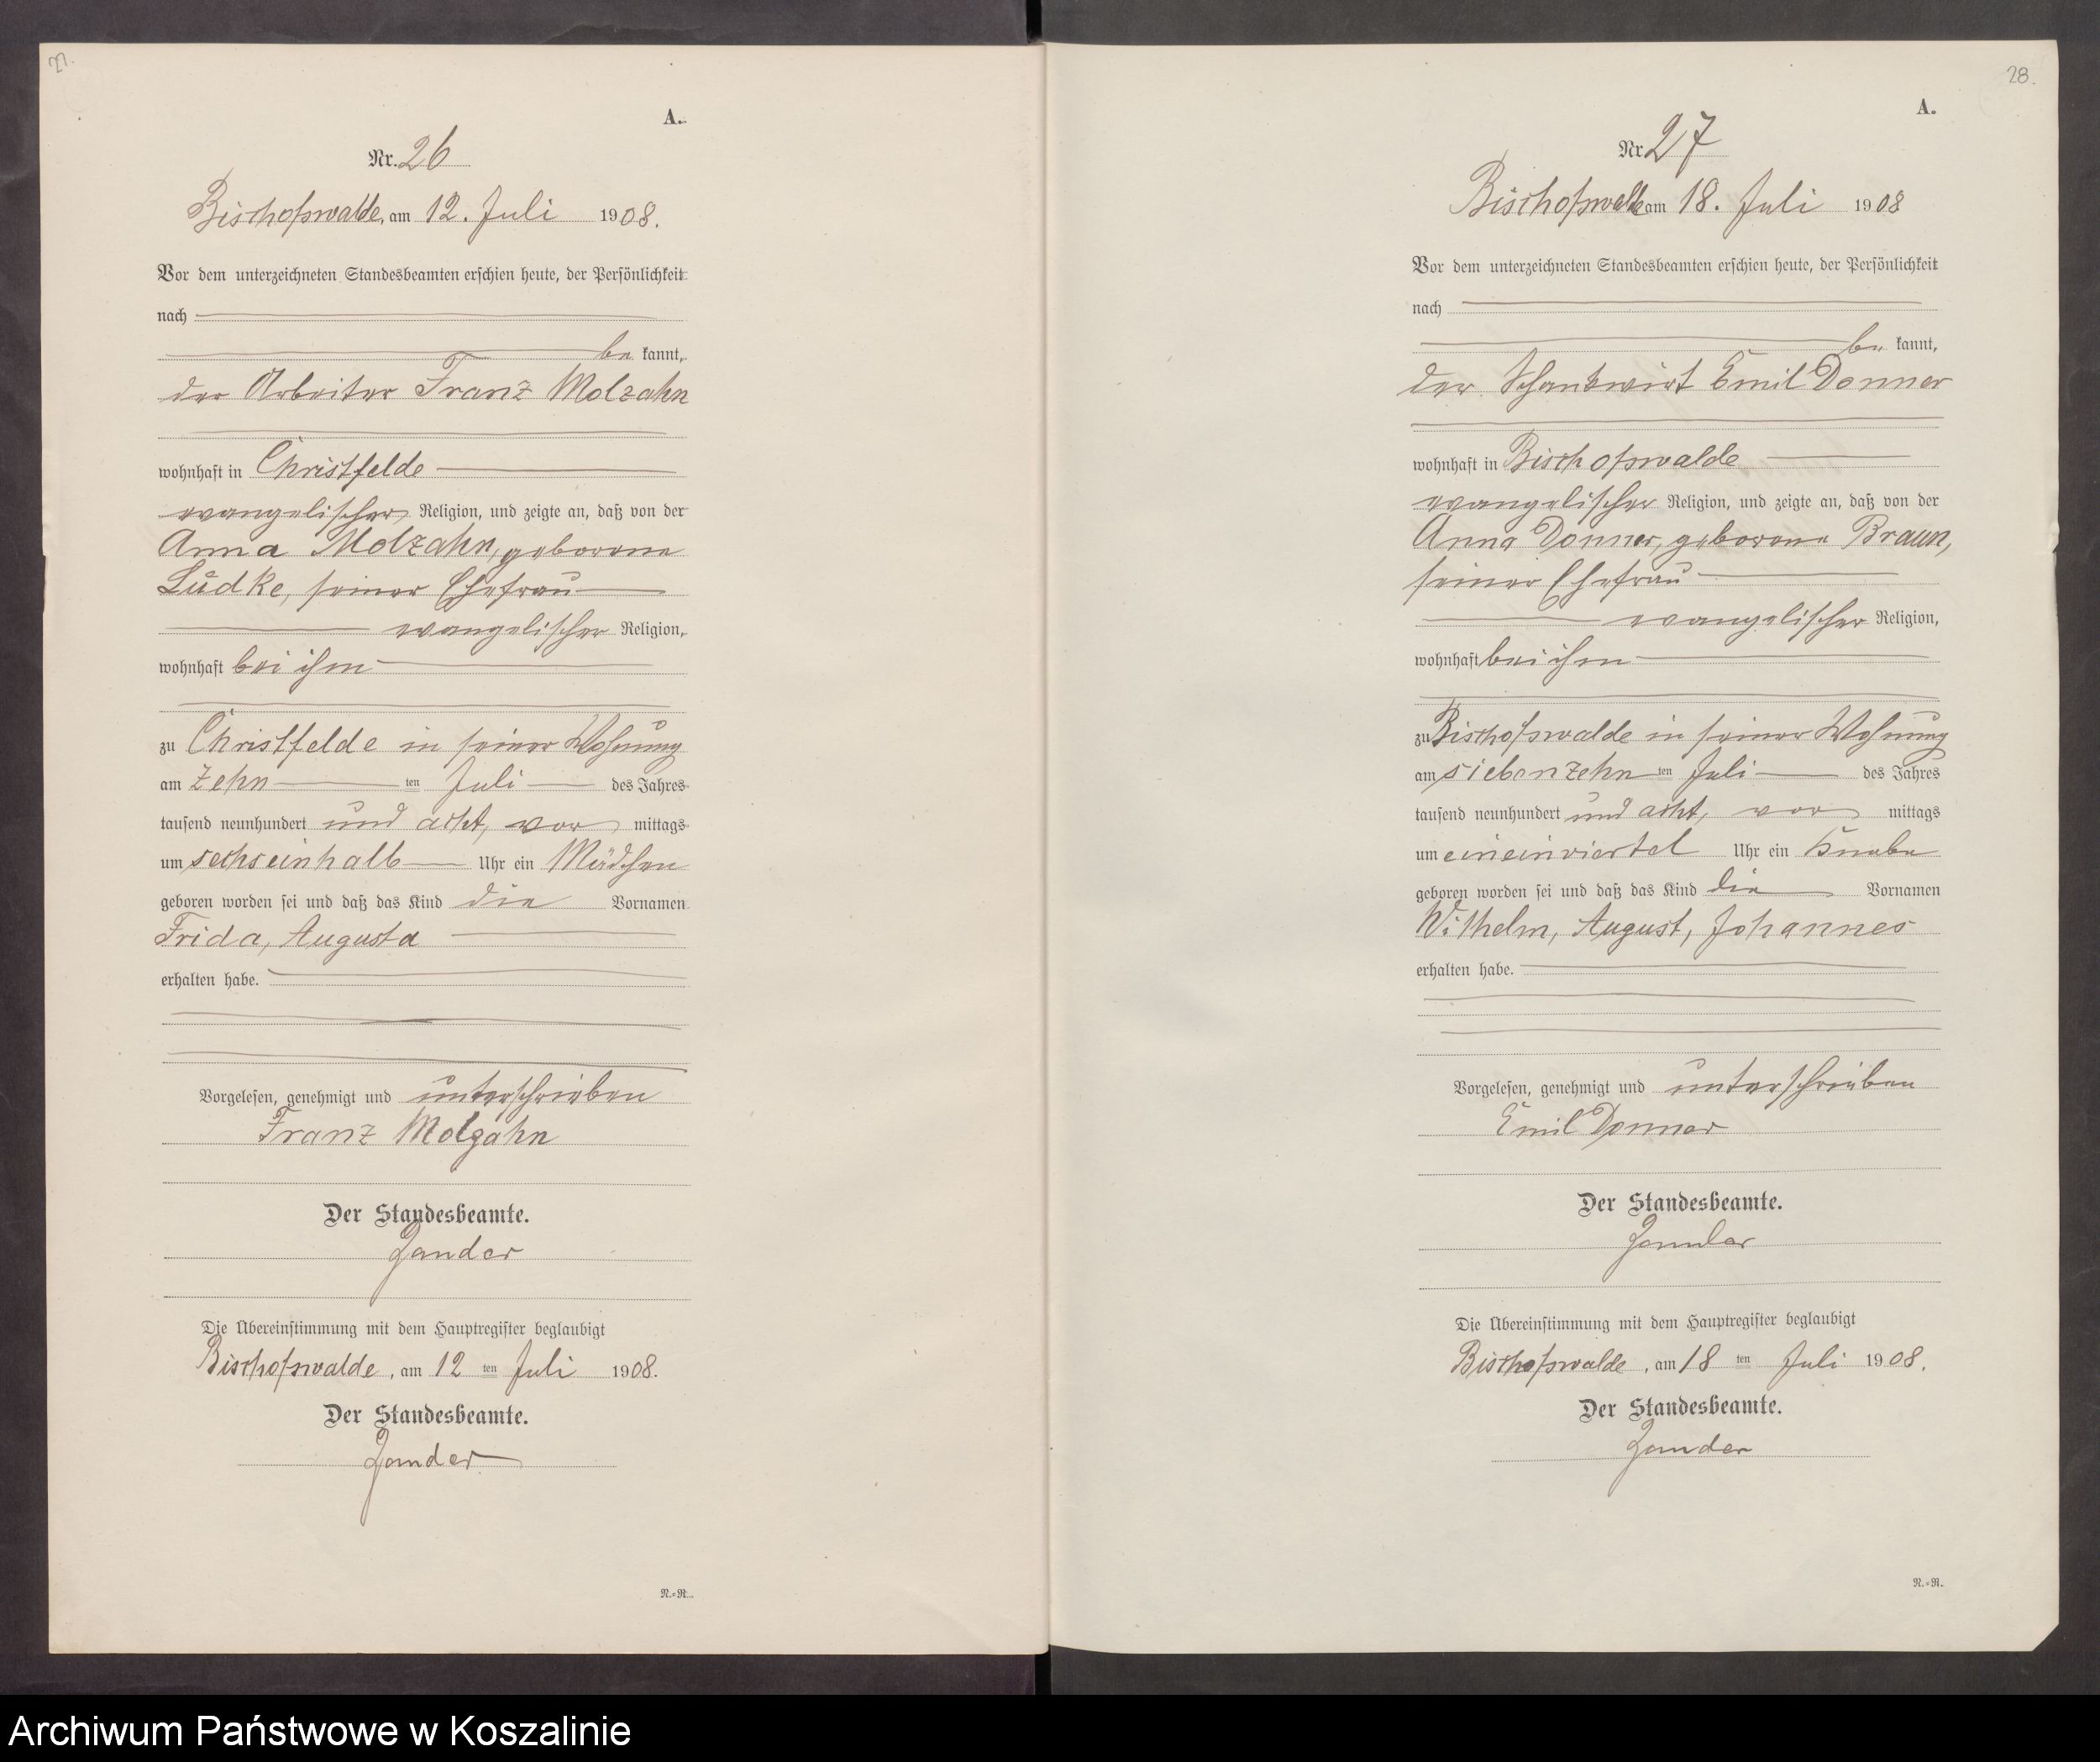 27.
A.
Nr. 26
Bischofswalde, am 12. Juli 1908.
Vor dem unterzeichneten Standesbeamten erschien heute, der Persönlichkeit
nach
be kannt,
der Arbeiter Franz Molzahn
wohnhaft in Christfelde
evangelischer Religion, und zeigte an, daß von der
Anna Molzahn, geborene
Lüdke, seiner Ehefrau
evangelischer Religion,
wohnhaft bei ihm
zu Christfelde in seiner Wohnung
am zehn ten Juli des Jahres
tausend neunhundert und acht, vor mittags
um sechseinhalb Uhr ein Mädchen
geboren worden sei und daß das Kind die Vornamen
Frida, Augusta
erhalten habe.
Vorgelesen, genehmigt und unterschrieben
Franz Molzahn
Der Standesbeamte.
Zander
Die Übereinstimmung mit dem Hauptregister beglaubigt
Bischofswalde, am 12 ten Juli 1908.
Der Standesbeamte.
Zander
N.=R.
28.
A.
Nr 27
Bischofswalde am 18. Juli 1908
Vor dem unterzeichneten Standesbeamten erschien heute, der Persönlichkeit
nach
be kannt,
der Schankwirt Emil Donner
wohnhaft in Bischofswalde
evangelischer Religion, und zeigte an, daß von der
Anna Donner, geborene Braun,
seiner Ehefrau
evangelischer Religion,
wohnhaft bei ihm
zu Bischofswalde in seiner Wohnung
am siebenzehn ten Juli des Jahres
tausend neunhundert und acht, vor mittags
um eineinviertel Uhr ein Knabe
geboren worden sei und daß das Kind die Vornamen
Wilhelm, August, Johannes
erhalten habe.
Vorgelesen, genehmigt und unterschrieben
Emil Donner
Der Standesbeamte.
Zander
Die Übereinstimmung mit dem Hauptregister beglaubigt
Bischofswalde, am 18 ten Juli 1908.
Der Standesbeamte.
Zander
N.=R.
Archiwum Państwowe w Koszalinie